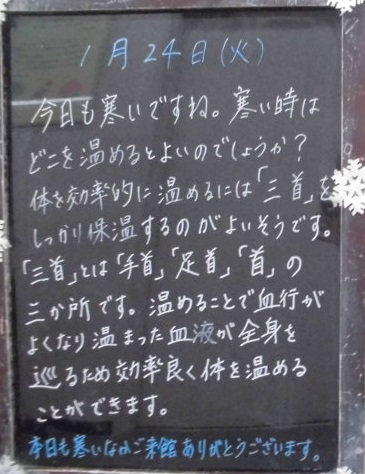 1月24日(火)
今日も寒いですね。寒い時は
どこを温めるとよいのでしょうか?
体を効率的に温めるには「三首」を
しっかり保温するのがよいそうです。
「三首」とは「手首」「足首」「首」の
三か所です。温めることで血行が
よくなり温まった血液が全身を
巡るため効率良く体を温める
ことができます。
本日も寒いなかご来館ありがとうございます。